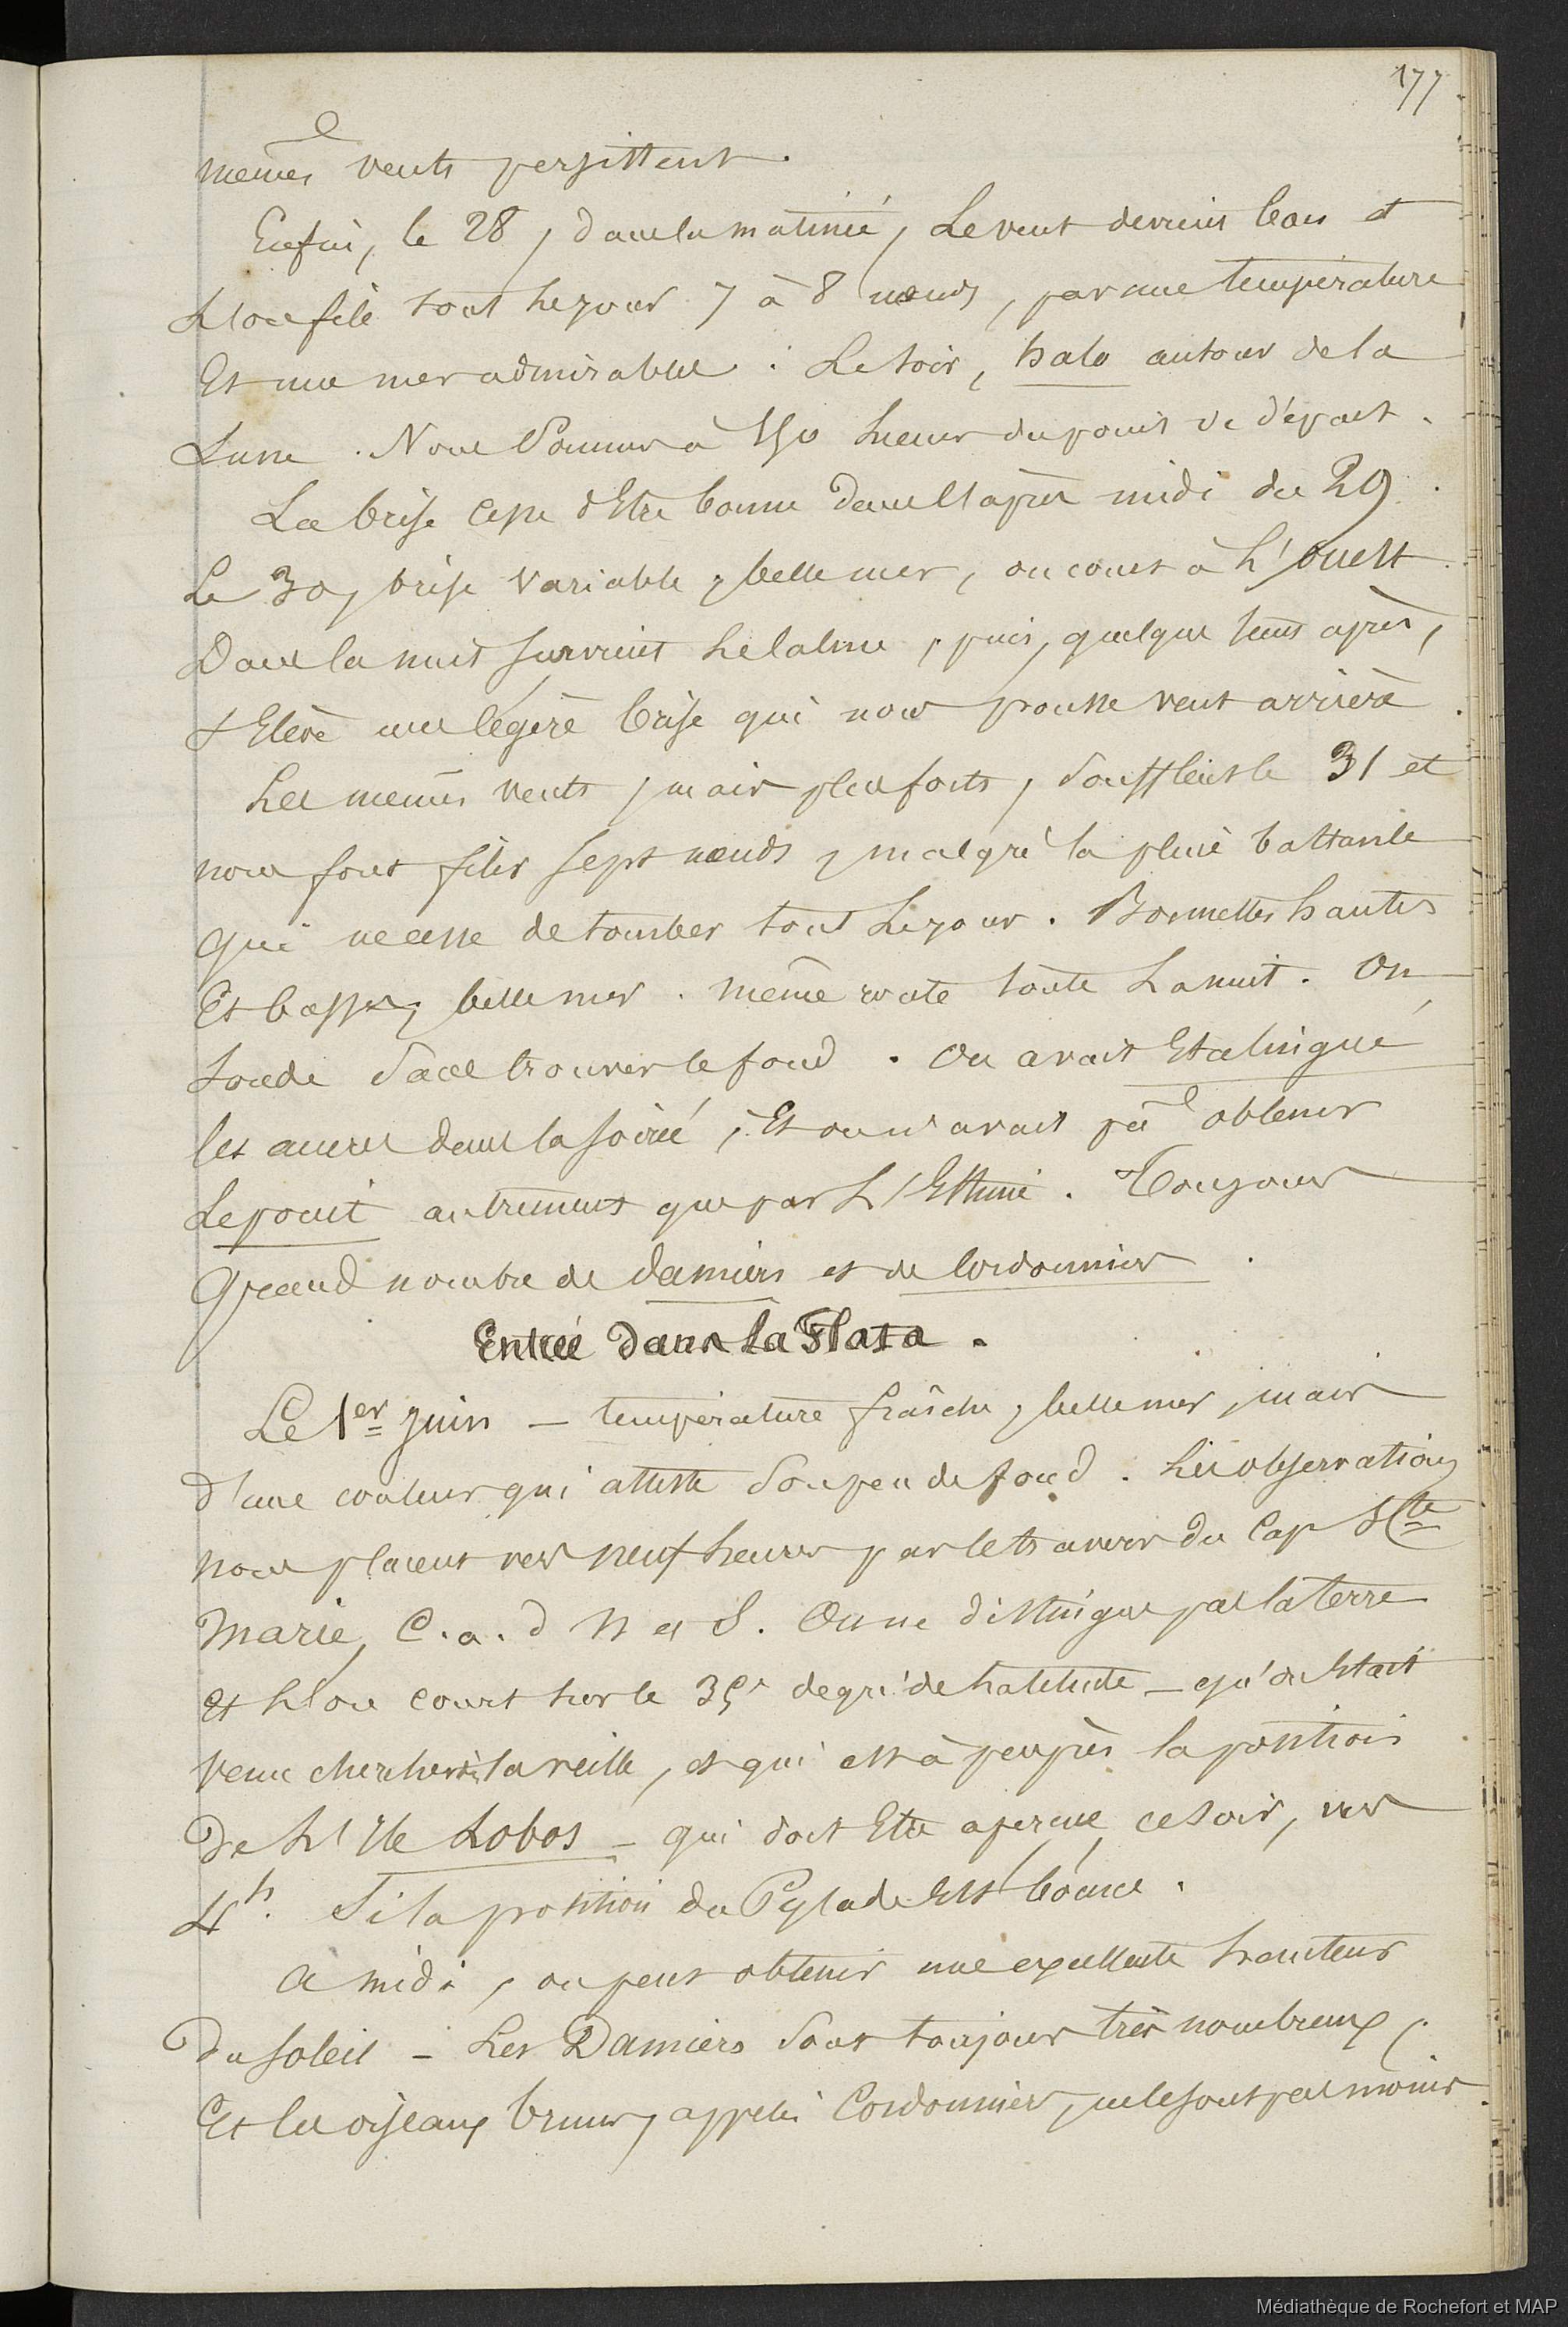 177
mêmes vents persistent.
Enfin, le 28, dans la matinée, le vent devient bon et
l'on file tout le jour 7 à 8 nœuds, par une température
et une mer admirables. Le soir, halo autour de la
Lune. Nous sommes à 150 lieues du point de départ.
La brise cesse d'être bonne dans l'après midi du 29.
Le 30, brise variable, belle mer, on court à l'ouest.
Dans la nuit survient le calme, puis, quelque tems après,
s'élève une légère brise qui nous pousse vent arrière.
Les mêmes vents, mais plus forts, soufflent le 31 et
nous font filer sept nœuds, malgré la pluie battante
qui ne cesse de tomber tout le jour. Bonnettes hautes
et basses, belle mer. même route toute la nuit. On
sonde sans trouver le fond. On avait étalingué
les ancres dans la soirée, et on n'avait pu obtenir
le point autrement que par l'Estime. Toujours
grand nombre de damiers et de cordonniers.
Entrée dans la Plata.
Le 1er Juin — température fraîche, belle mer, mais
d'une couleur qui atteste son peu de fond. Les observations
nous placent vers neuf heures par le travers du Cap Ste
Marie, C.a.d N et S. On ne distingue pas la terre
et l'on court sur le 35e degré de latitude — qu'on était
venu chercher la veille, et qui est à peu près la position
de l'Ile Lobos — qui doit être aperçue ce soir, vers
4h. Si la position du Pylade est bonne.
A midi, on peut obtenir une excellente hauteur
du soleil — Les Damiers sont toujours très nombreux,
et les oiseaux bruns, appelés Cordonniers, ne le sont pas moins
Médiathèque de Rochefort et MAP